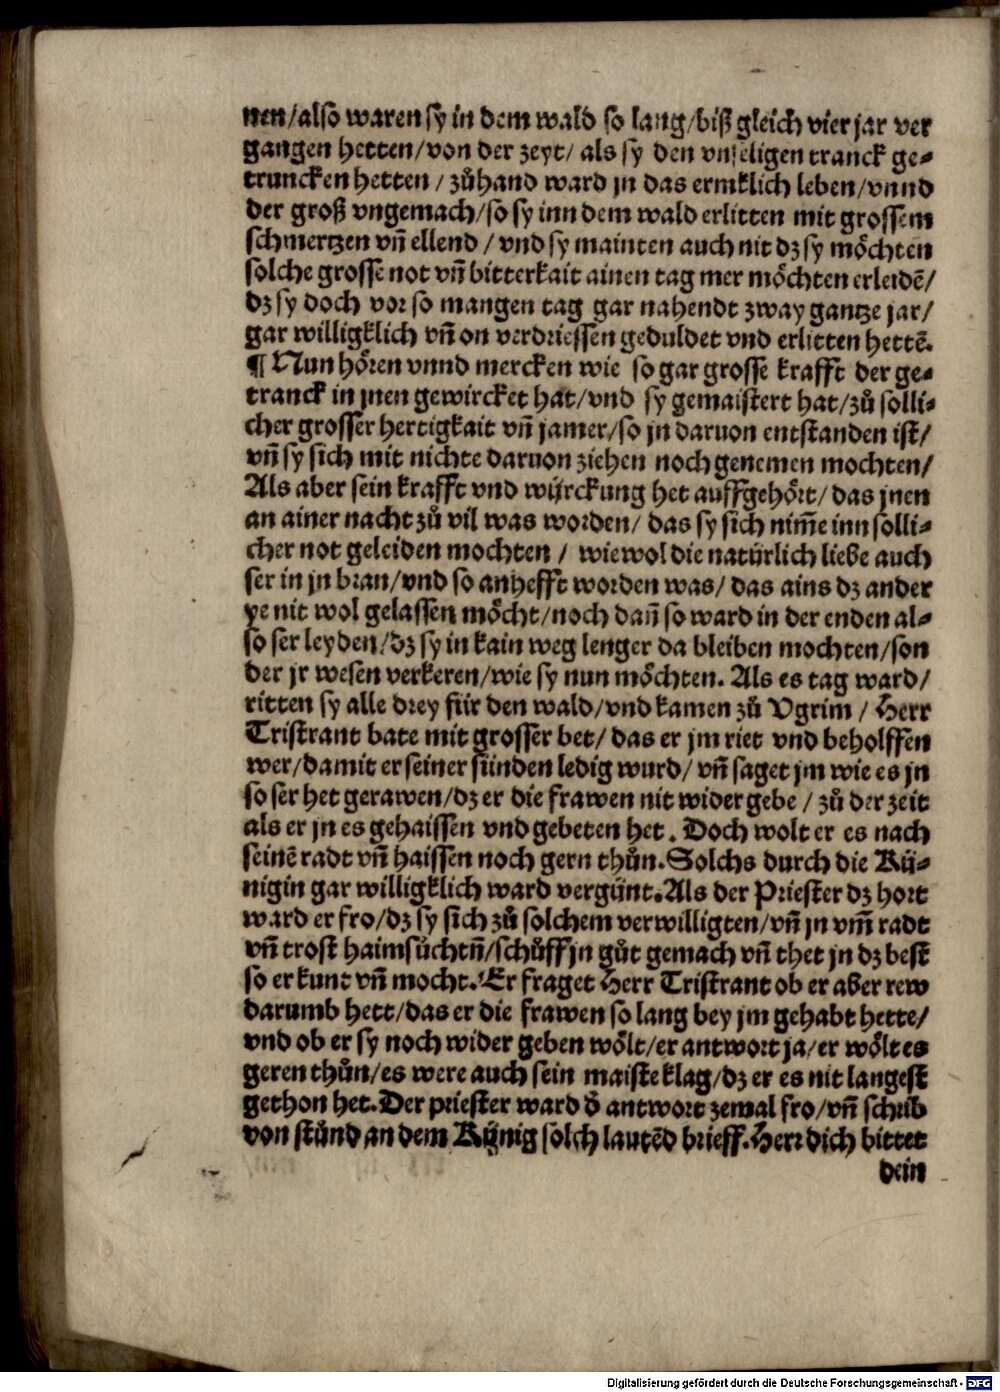 nen/also waren sy in dem wald so lang/biß gleich vier jar ver
gangen hetten/von der zeyt/ als sy den vnseligen tranck ge⸗
truncken hetten / zůhand ward jn das ermklich leben/vnnd
der groß vngemach/so sy inn dem wald erlitten mit grossem
schmertzen vñ ellend / vnd sy mainten auch nit dz sy möchten
solche grosse not vñ bitterkait ainen tag mer möchten erleidē/
dz sy doch vor so mangen tag gar nahendt zway gantze jar/
gar willigklich vñ on verdriessen geduldet vnd erlitten hettē.
¶ Nun hören vnnd mercken wie so gar grosse krafft der ge⸗
tranck in jnen gewircket hat/vnd sy gemaistert hat/zů solli⸗
cher grosser hertigkait vñ jamer/so jn daruon entstanden ist/
vñ sy sich mit nichte daruon ziehen noch genemen mochten/
Als aber sein krafft vnd würckung het auffgehört/das jnen
an ainer nacht zů vil was worden/ das sy sich nim̄e inn solli⸗
cher not geleiden mochten / wiewol die natürlich liebe auch
ser in jn bran/vnd so anhefft worden was/ das ains dz ander
ye nit wol gelassen möcht/noch dañ so ward in der enden al⸗
so ser leyden/dz sy in kain weg lenger da bleiben mochten/son
der jr wesen verkeren/wie sy nun möchten. Als es tag ward/
ritten sy alle drey für den wald/vnd kamen zů Vgrim / Herr
Tristrant bate mit grosser bet/ das er jm riet vnd beholffen
wer/damit er seiner sünden ledig wurd/ vñ saget jm wie es jn
so ser het gerawen/dz er die frawen nit wider gebe / zů der zeit
als er jn es gehaissen vnd gebeten het. Doch wolt er es nach
seinē radt vñ haissen noch gern thůn. Solchs durch die Kü⸗
nigin gar willigklich ward vergünt. Als der Priester dz hort
ward er fro/dz sy sich zů solchem verwilligten/vñ jn vm̄ radt
vñ trost haimsůchtñ/schůff jn gůt gemach vñ thet jn dz best
so er kunt vñ mocht. Er fraget Herr Tristrant ob er aber rew
darumb hett/das er die frawen so lang bey jm gehabt hette/
vnd ob er sy noch wider geben wölt/er antwort ja/er wölt es
geren thůn/es were auch sein maiste klag/dz er es nit langest
gethon het. Der priester ward d̄ antwort zemal fro/vñ schrib
von stůnd an dem Künig solch lautēd brieff. Herr dich bittet
dein
Digitalisierung gefördert durch die Deutsche Forschungsgemeinschaft - DFG